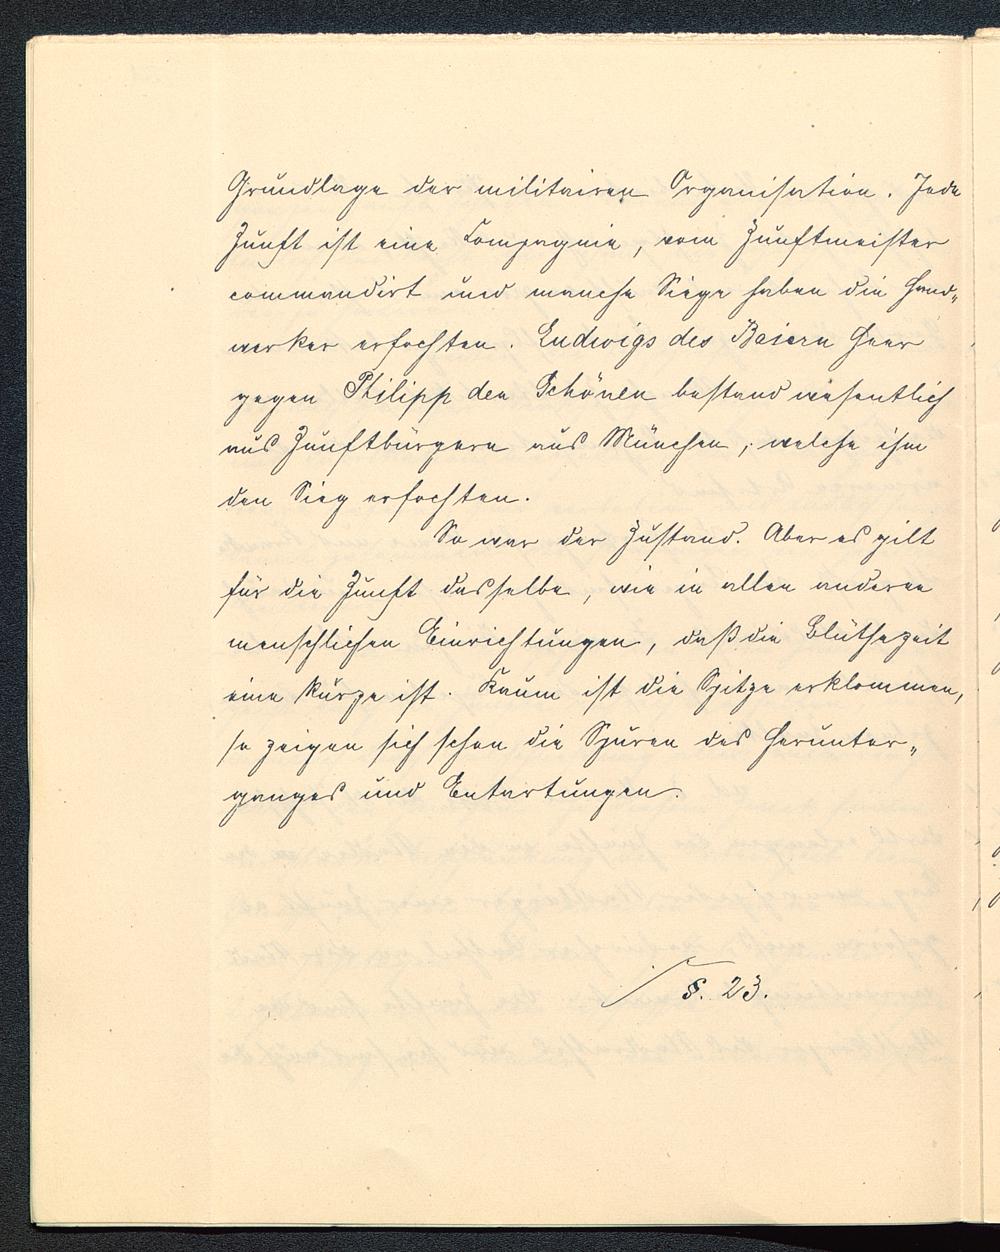 Grundlage der militairen Organisation. Jede
Zunft ist eine Compagnie, vom Zunftmeister
commandirt und manche Siege haben die Hand-
werker erfochten. Ludwigs des Baiern Heer
gegen Philipp den Schönen bestand wesentlich
aus Zunftbürgern aus München, welche ihm
den Sieg erfochten.
So war der Zustand. Aber es gilt
für die Zunft dasselbe, wie in allen anderen
menschlichen Einrichtungen, daß die Blüthezeit
eine kurze ist. Kaum ist die Spitze erklommen,
so zeigen sich schon die Spuren des Herunter-
ganges und Entartungen.
§. 23.